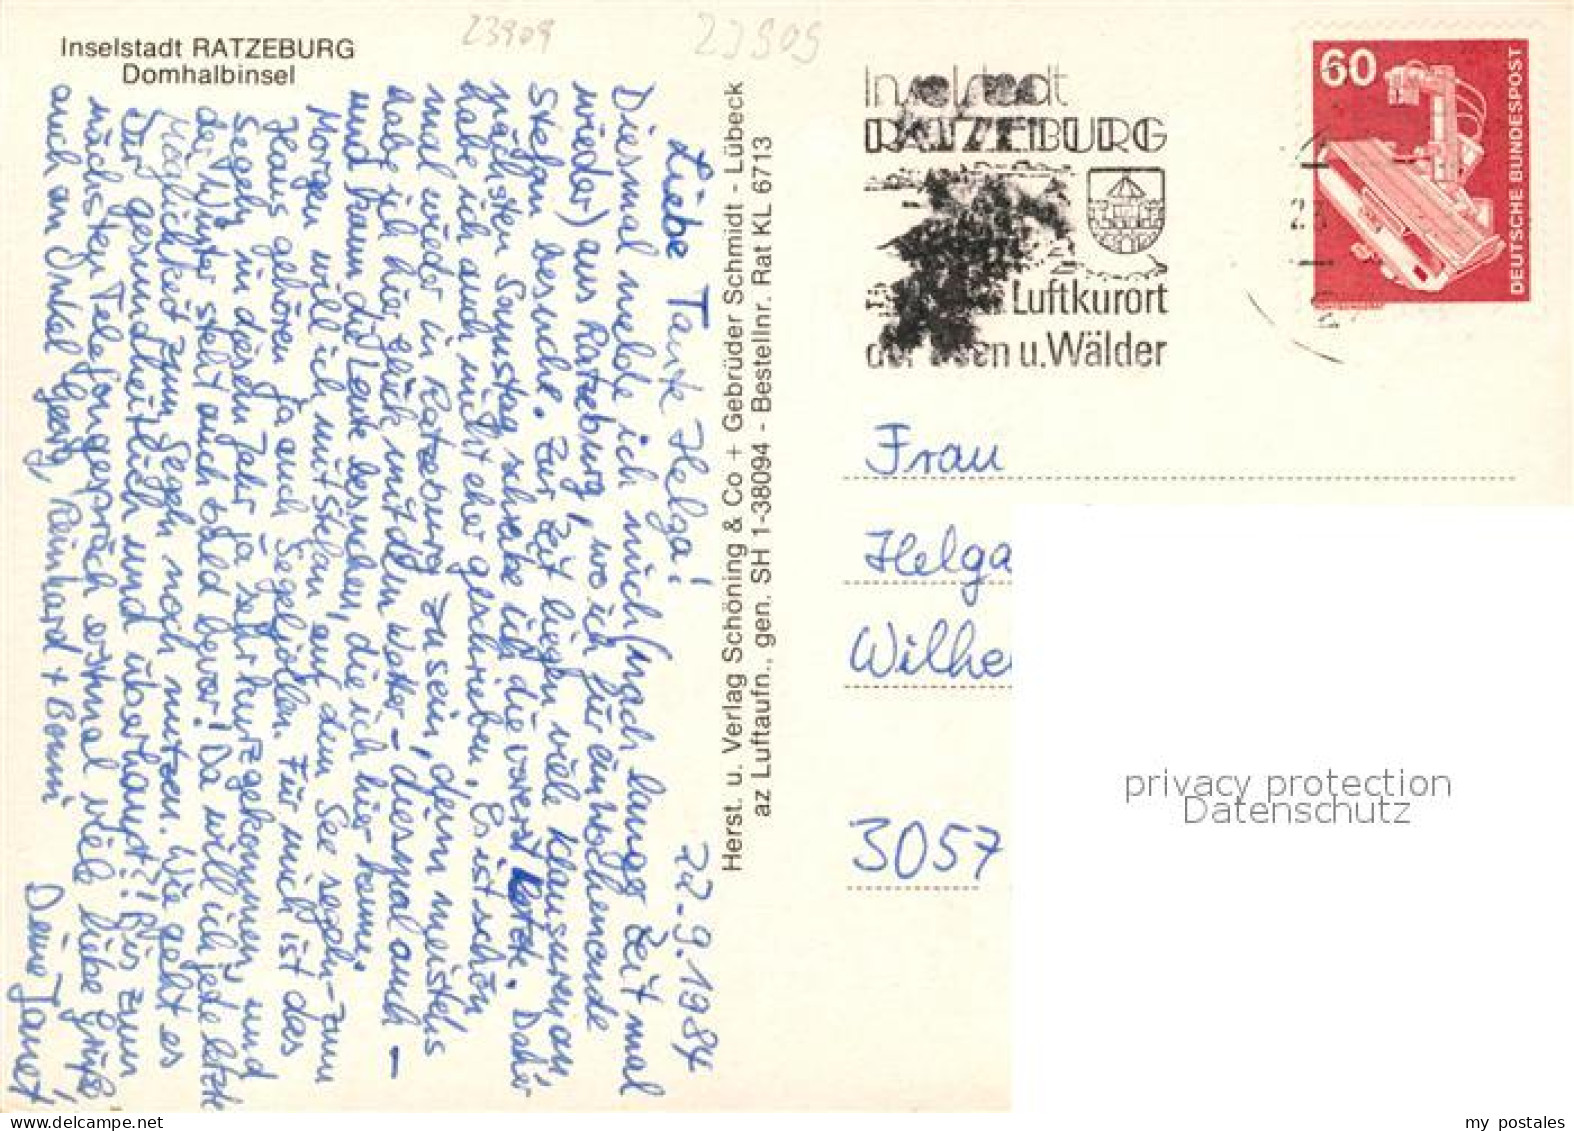 23909
23909
Inselstadt RATZEBURG
Domhalbinsel
22.9.1984
Liebe Tante Helga!
Diesmal melde ich mich (nach langer Zeit mal
wieder) aus Ratzeburg, wo ich für ein Wochenende
Stefan besuche. Zur Zeit liegen viele Klausuren an,
nächsten Samstag schreibe ich die vorerst letzte. Daher
habe ich auch nicht eher geschrieben. Es ist schön
mal wieder in Ratzeburg zu sein, denn meistens
habe ich hier Glück mit dem Wetter - diesmal auch -
und kann die Leute besuchen, die ich hier kenne.
Morgen will ich mit Stefan auf dem See segeln - zum
Haus gehören ja auch Segeljollen. Für mich ist das
Segeln in diesem Jahr ja sehr kurzgekommen, und
der Winter steht auch bald bevor! Da will ich jede letzte
Möglichkeit zum Segeln noch nutzen. Wie geht es
Dir gesundheitlich und überhaupt?! Bis zum
nächsten Telefongespräch erstmal viele liebe Grüße,
auch an Onkel Georg, Reinhard +
Deine Janet
Herst. u. Verlag Schöning & Co + Gebrüder Schmidt - Lübeck
az Luftaufn., gen. SH 1-38094 - Bestellnr. Rat KL 6713
Inselstadt
RATZEBURG
Luftkurort
der Seen u. Wälder
60
DEUTSCHE BUNDESPOST
23
Frau
Helga
Wilhe
3057
privacy protection
Datenschutz
my postales